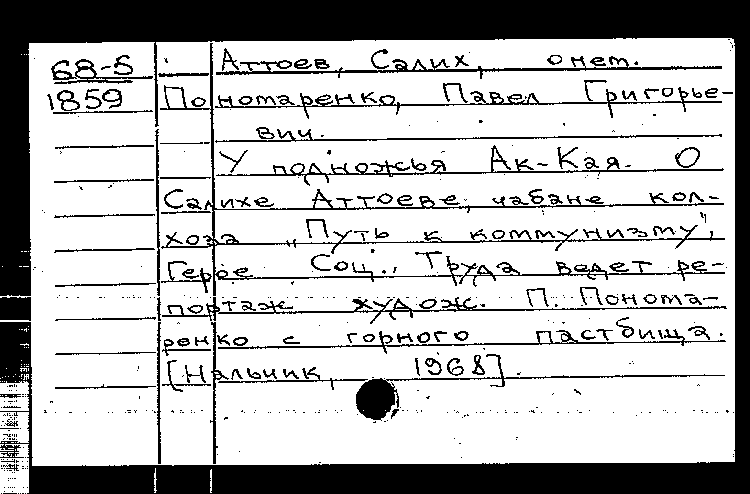 68-5 Аттоев, Салих, о нем.
1859 Пономаренко, Павел Григорье-
вич.
У подножья Ак-Кая. О
Салихе Аттоеве, чабане кол-
хоза „Путь к коммунизму",
Герое Соц.. Труда ведет ре-
портаж худож. П. Понома-
ренко с горного пастбища.
[Нальчик, 1968].